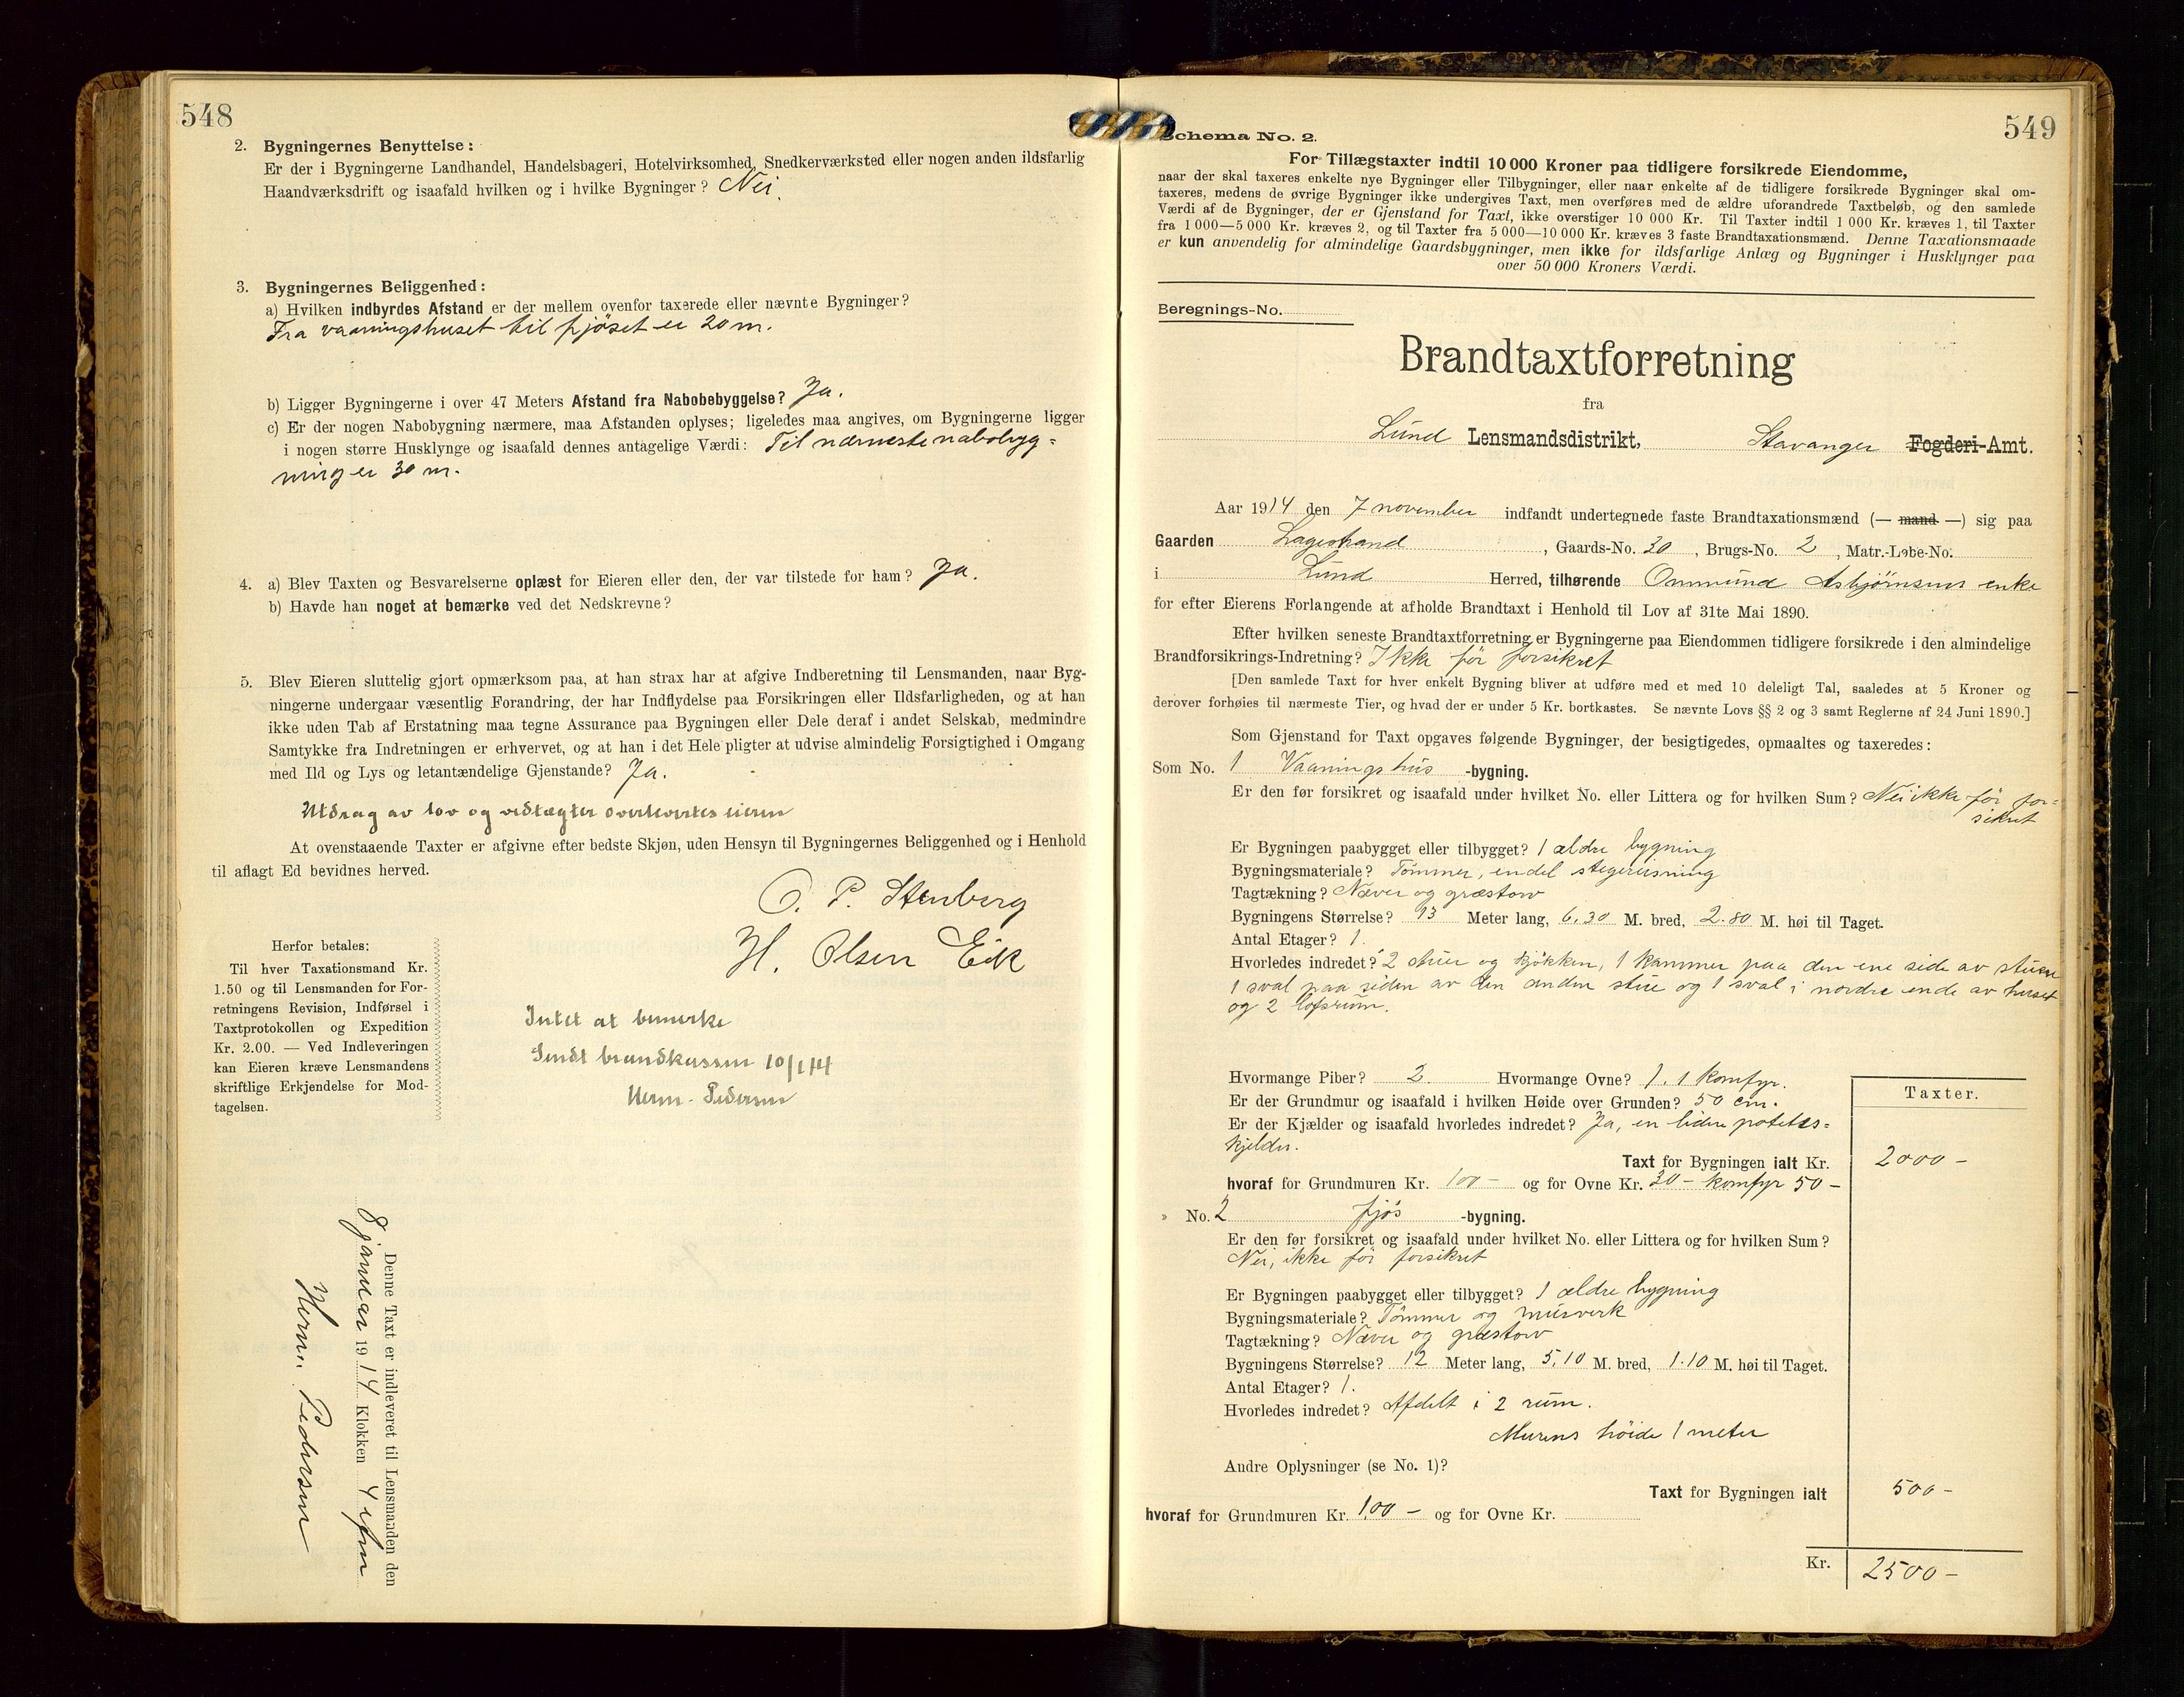 548
2. Bygningernes Benyttelse:
Er der i Bygningerne Landhandel, Handelsbageri, Hotelvirksomhed, Snedkerværksted eller nogen anden ildsfarlig
Haandværksdrift og isaafald hvilken og i hvilke Bygninger? Nei.
3. Bygningernes Beliggenhed:
a) Hvilken indbyrdes Afstand er der mellem ovenfor taxerede eller nævnte Bygninger?
Fra vaaningshuset til fjøset er 20 m.
b) Ligger Bygningerne i over 47 Meters Afstand fra Nabobebyggelse? Ja.
c) Er der nogen Nabobygning nærmere, maa Afstanden oplyses; ligeledes maa angives, om Bygningerne ligger
i nogen større Husklynge og isaafald dennes antagelige Værdi: Til nærmeste nabobyg=
ning er 30 m.
4. a) Blev Taxten og Besvarelserne oplæst for Eieren eller den, der var tilstede for ham? Ja.
b) Havde han noget at bemærke ved det Nedskrevne?
5. Blev Eieren sluttelig gjort opmærksom paa, at han strax har at afgive Indberetning til Lensmanden, naar Byg-
ningerne undergaar væsentlig Forandring, der har Indflydelse paa Forsikringen eller Ildsfarligheden, og at han
ikke uden Tab af Erstatning maa tegne Assurance paa Bygningen eller Dele deraf i andet Selskab, medmindre
Samtykke fra Indretningen er erhvervet, og at han i det Hele pligter at udvise almindelig Forsigtighed i Omgang
med Ild og Lys og letantændelige Gjenstande? Ja.
Utdrag av lov og vedtægter overlevertes eieren
At ovenstaaende Taxter er afgivne efter bedste Skjøn, uden Hensyn til Bygningernes Beliggenhed og i Henhold
til aflagt Ed bevidnes herved.
O. P. Stenberg
H. Olsen Eik
Herfor betales:
Til hver Taxationsmand Kr.
1.50 og til Lensmanden for For-
retningens Revision, Indførsel i
Taxtprotokollen og Expedition
Kr. 2.00. — Ved Indleveringen
kan Eieren kræve Lensmandens
skriftlige Erkjendelse for Mod-
tagelsen.
Intet at bemerke
Sendt brandkassen 10/1 14
Herm. Pedersen
Denne Taxt er indleveret til Lensmanden den
8 januar 1914 Klokken 4 efm
Herm. Pedersen
549
Schema No. 2.
For Tillægstaxter indtil 10 000 Kroner paa tidligere forsikrede Eiendomme,
naar der skal taxeres enkelte nye Bygninger eller Tilbygninger, eller naar enkelte af de tidligere forsikrede Bygninger skal om-
taxeres, medens de øvrige Bygninger ikke undergives Taxt, men overføres med de ældre uforandrede Taxtbeløb, og den samlede
Værdi af de Bygninger, der er Gjenstand for Taxt, ikke overstiger 10 000 Kr. Til Taxter indtil 1 000 Kr. kræves 1, til Taxter
fra 1 000—5 000 Kr. kræves 2, og til Taxter fra 5 000—10 000 Kr. kræves 3 faste Brandtaxationsmænd. Denne Taxationsmaade
er kun anvendelig for almindelige Gaardsbygninger, men ikke for ildsfarlige Anlæg og Bygninger i Husklynger paa
over 50 000 Kroners Værdi.
Beregnings-No.
Brandtaxtforretning
fra
Lund Lensmandsdistrikt, Stavanger Fogderi-Amt.
Aar 1914 den 7 november indfandt undertegnede faste Brandtaxationsmænd (— mand —) sig paa
Gaarden Lagestrand, Gaards-No. 30, Brugs-No. 2, Matr.-Løbe-No.
i Lund Herred, tilhørende Ommund Asbjørnsens enke
for efter Eierens Forlangende at afholde Brandtaxt i Henhold til Lov af 31te Mai 1890.
Efter hvilken seneste Brandtaxtforretning er Bygningerne paa Eiendommen tidligere forsikrede i den almindelige
Brandforsikrings-Indretning? Ikke før forsikret
[Den samlede Taxt for hver enkelt Bygning bliver at udføre med et med 10 deleligt Tal, saaledes at 5 Kroner og
derover forhøies til nærmeste Tier, og hvad der er under 5 Kr. bortkastes. Se nævnte Lovs §§ 2 og 3 samt Reglerne af 24 Juni 1890.]
Som Gjenstand for Taxt opgaves følgende Bygninger, der besigtigedes, opmaaltes og taxeredes:
Som No. 1 Vaaningshus -bygning.
Er den før forsikret og isaafald under hvilket No. eller Littera og for hvilken Sum? Nei ikke før for=
sikret
Er Bygningen paabygget eller tilbygget? 1 ældre bygning
Bygningsmateriale? Tømmer, endel stegereisning
Tagtækning? Næver og græstorv
Bygningens Størrelse? 13 Meter lang, 6,30 M. bred, 2.80 M. høi til Taget.
Antal Etager? 1.
Hvorledes indredet? 2 stuer og kjøkken, 1 kammer paa den ene side av stuene
1 sval paa siden av den anden stue og 1 sval i nordre ende av huset
og 2 loftsrum.
Hvormange Piber? 2. Hvormange Ovne? 1. 1 komfyr.
Er der Grundmur og isaafald i hvilken Høide over Grunden? 50 cm.
Er der Kjælder og isaafald hvorledes indredet? Ja, en liden potetes=
kjelder.
Taxter.
Taxt for Bygningen ialt Kr. 2000 -
hvoraf for Grundmuren Kr. 100 - og for Ovne Kr. 30 - komfyr 50 -
» No. 2 fjøs -bygning.
Er den før forsikret og isaafald under hvilket No. eller Littera og for hvilken Sum?
Nei, ikke før forsikret
Er Bygningen paabygget eller tilbygget? 1 ældre bygning
Bygningsmateriale? Tømmer og murverk
Tagtækning? Næver og græstorv
Bygningens Størrelse? 12 Meter lang, 5,10 M. bred, 1.10 M. høi til Taget.
Antal Etager? 1.
Hvorledes indredet? Afdelt i 2 rum.
Murens høide 1 meter
Andre Oplysninger (se No. 1)?
Taxt for Bygningen ialt 500 -
hvoraf for Grundmuren Kr. 100 - og for Ovne Kr.
Kr. 2500 -